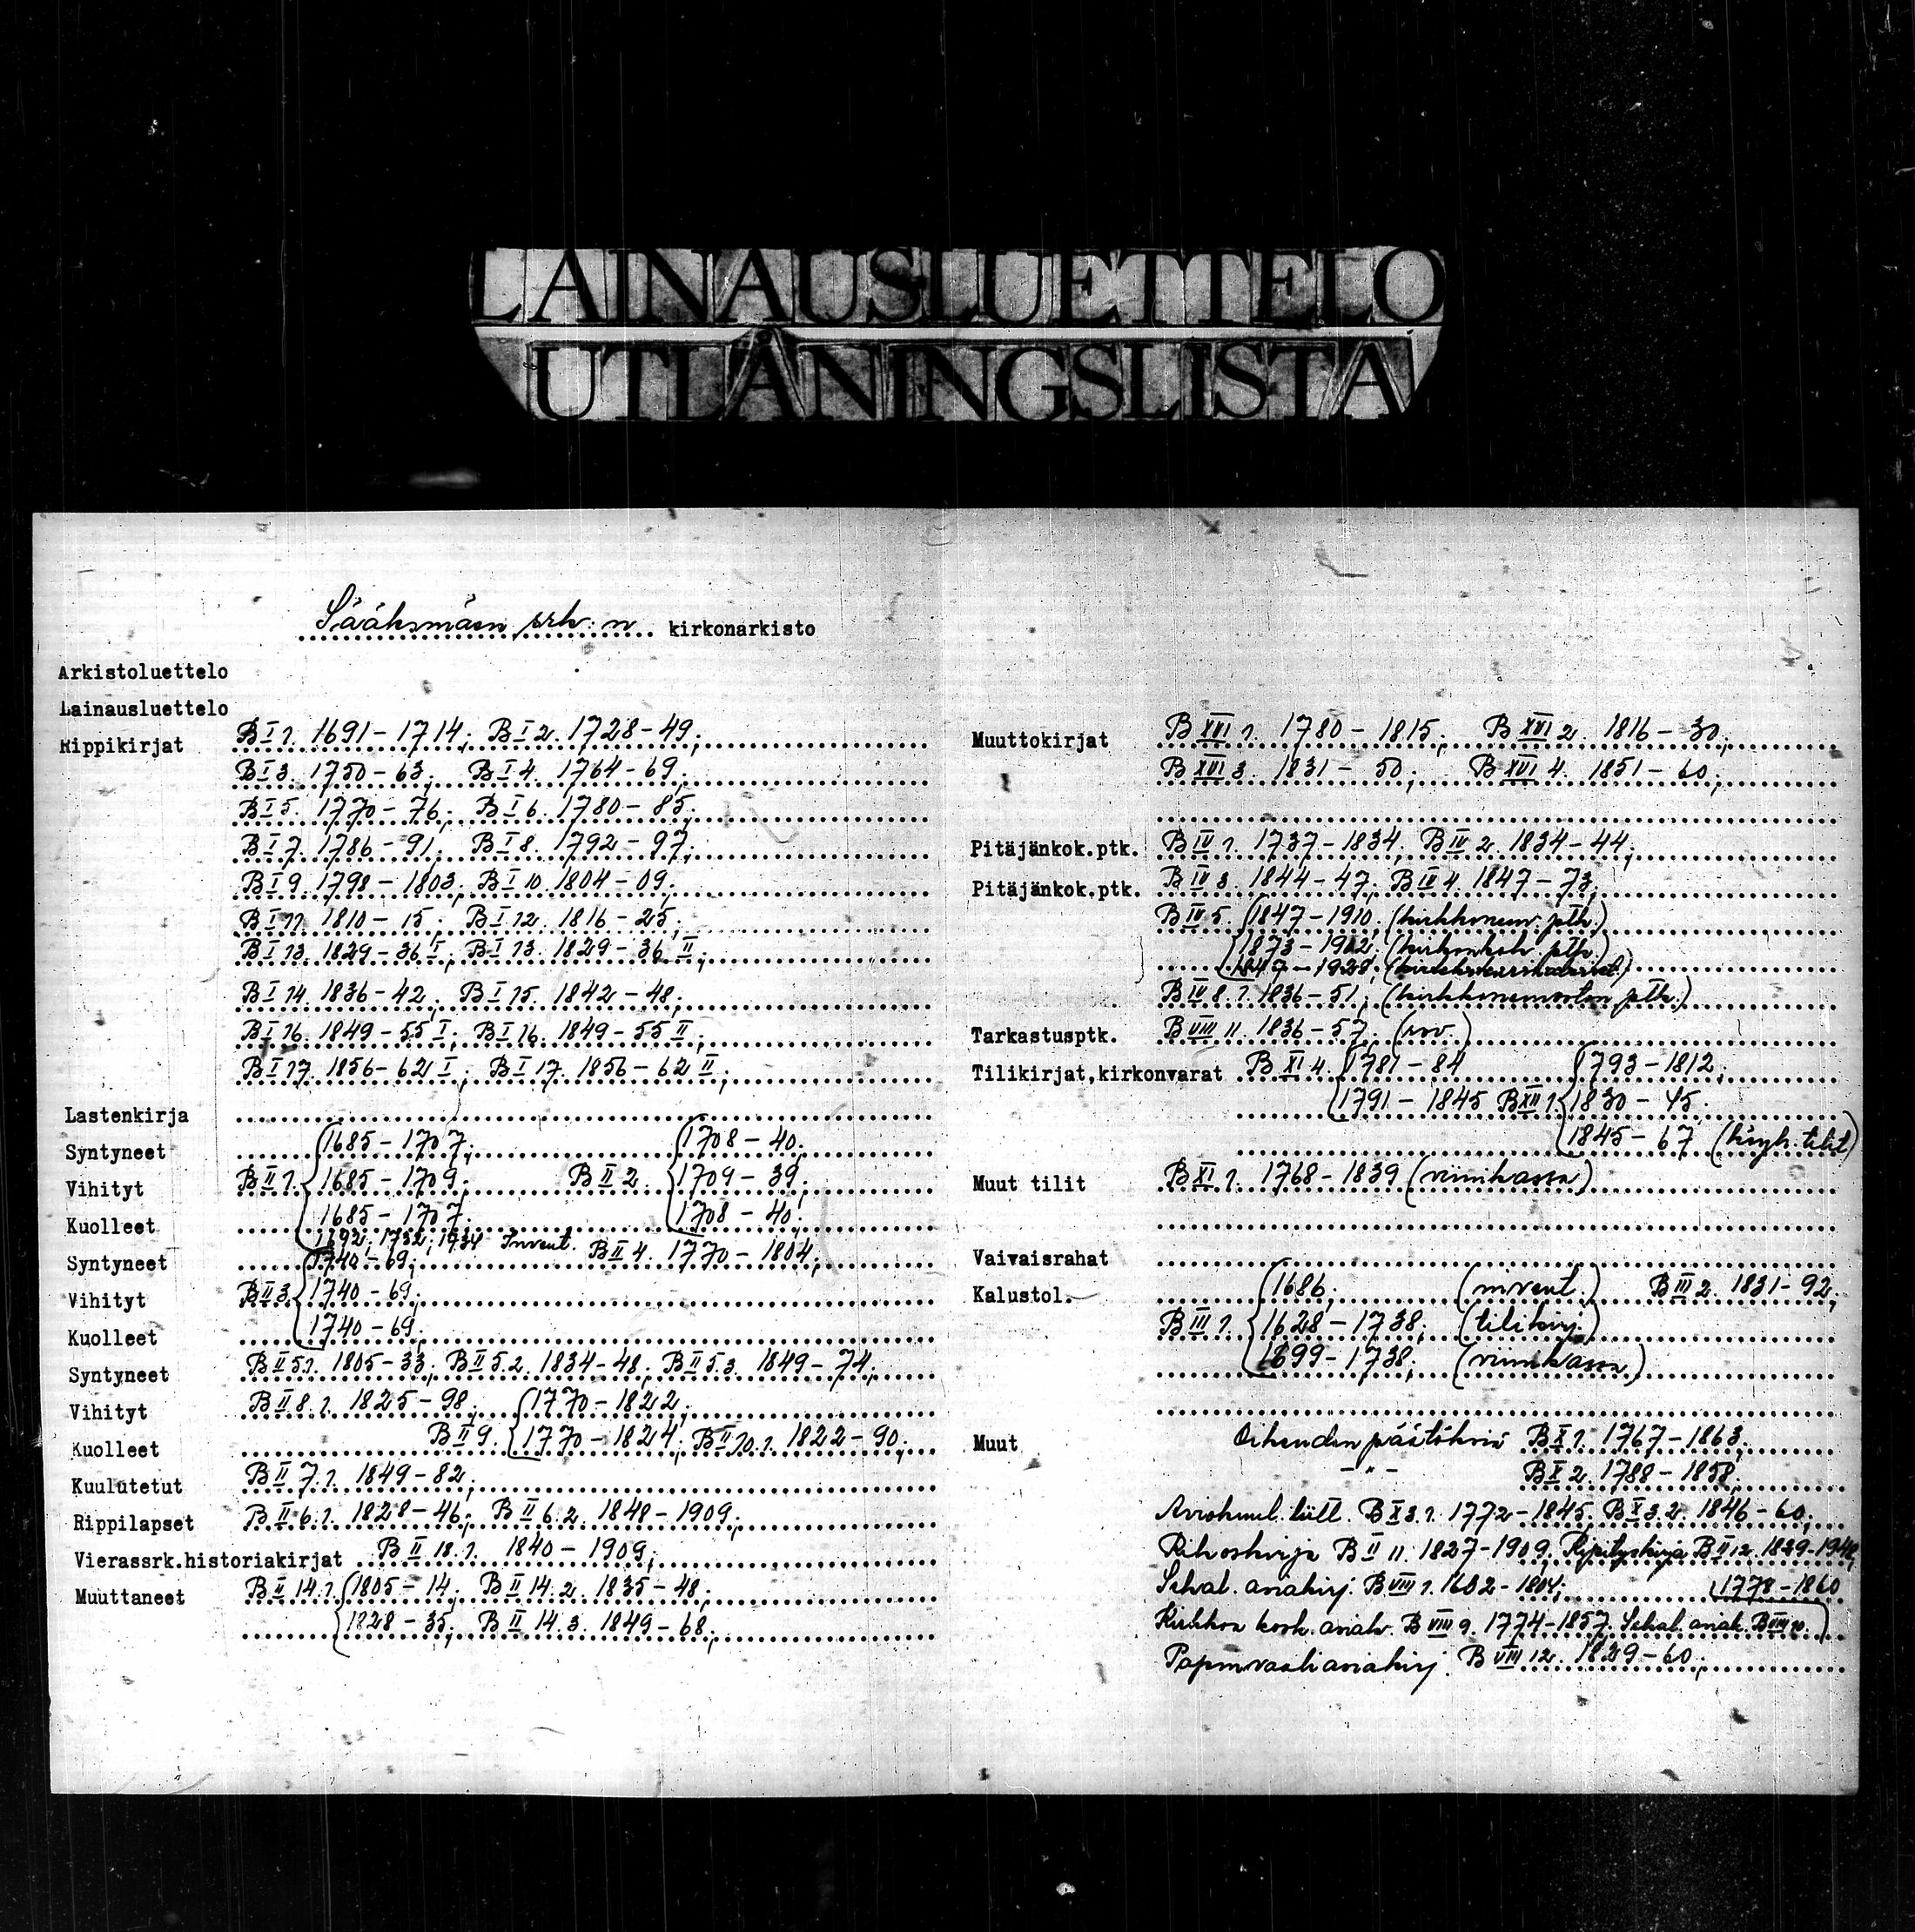 LAINAUSLUETTELO
UTLÅNINGSLISTA
Sääksmäen srk:n kirkonarkisto
Arkistoluettelo
Lainausluettelo
Rippikirjat B I 1. 1691-1714; B I 2. 1728-49;
B I 3. 1750-63; B I 4. 1764-69;
B I 5. 1770-76; B I 6. 1780-85;
B I 7. 1786-91; B I 8. 1792-97;
B I 9. 1798-1803; B I 10. 1804-09;
B I 11. 1810-15; B I 12. 1816-25;
B I 13. 1829-36 I; B I 13. 1829-36 II;
B I 14. 1836-42; B I 15. 1842-48;
B I 16. 1849-55 I; B I 16. 1849-55 II;
B I 17. 1856-62 I; B I 17. 1856-62 II;
Lastenkirja
Syntyneet 1685-1707; 1708-40;
Vihityt B II 1. 1685-1709; B II 2. 1709-39;
Kuolleet 1685-1707. 1708-40;
1692; 1732; 1734 Invent.
Syntyneet 1740-69; B II 4. 1770-1804;
Vihityt B II 3 1740-69;
Kuolleet 1740-69;
Syntyneet B II 5.1. 1805-33; B II 5.2. 1834-48; B II 5.3. 1849-74;
Vihityt B II 8.1. 1825-98; 1770-1822;
Kuolleet B II 9. 1770-1824; B II 10.1. 1822-90;
Kuulutetut B II 7.1. 1849-82;
Rippilapset B II 6.1. 1828-46; B II 6.2. 1848-1909;
Vierassrk.historiakirjat B II 18.1. 1840-1909;
Muuttaneet B II 14.1. 1805-14; B II 14.2. 1835-48;
1828-35; B II 14.3. 1849-68;
Muuttokirjat B XVI 1. 1780-1815; B XVI 2. 1816-30;
B XVI 3. 1831-50; B XVI 4. 1851-60;
Pitäjänkok.ptk. B IV 1. 1737-1834; B IV 2. 1834-44;
Pitäjänkok.ptk. B IV 3. 1844-47; B IV 4. 1847-73;
B IV 5. 1847-1910; (kirkkoneuv. ptk.)
1873-1912; (kirkonkok. ptk)
B IV 8.1. 1836-51; (kirkkoneuvoston ptk.)
Tarkastusptk. B VIII 11. 1836-57. (rov.)
Tilikirjat,kirkonvarat B XI 4. 1781-84 1793-1812;
1791-1845 B XII 1. 1830-45;
1845-67 (köyh. tilit)
Muut tilit B XI 1. 1768-1839 (viinikassa)
Vaivaisrahat
Kalustol. 1686; (invent.) B III 2. 1831-92;
B III 1. 1628-1738; (tilikirj.)
1699-1738; (viinikassa)
Muut Oikeuden päätöksiä B X 1. 1767-1863;
-"- B X 2. 1788-1858;
Aviokuul. luett. B X 3.1. 1772-1845; B X 3.2. 1846-60;
Rikoskirja B II 11. 1827-1909; B II 12. 1829-1948;
Sekal. asiakirj. B VIII 1. 1602-1804; 1778-1860
Kirkkoa kosk. asiak. B VIII 9. 1774-1857. Sekal. asiak. B VIII 10.
Papinvaaliasiakirj. B VIII 12. 1829-60;